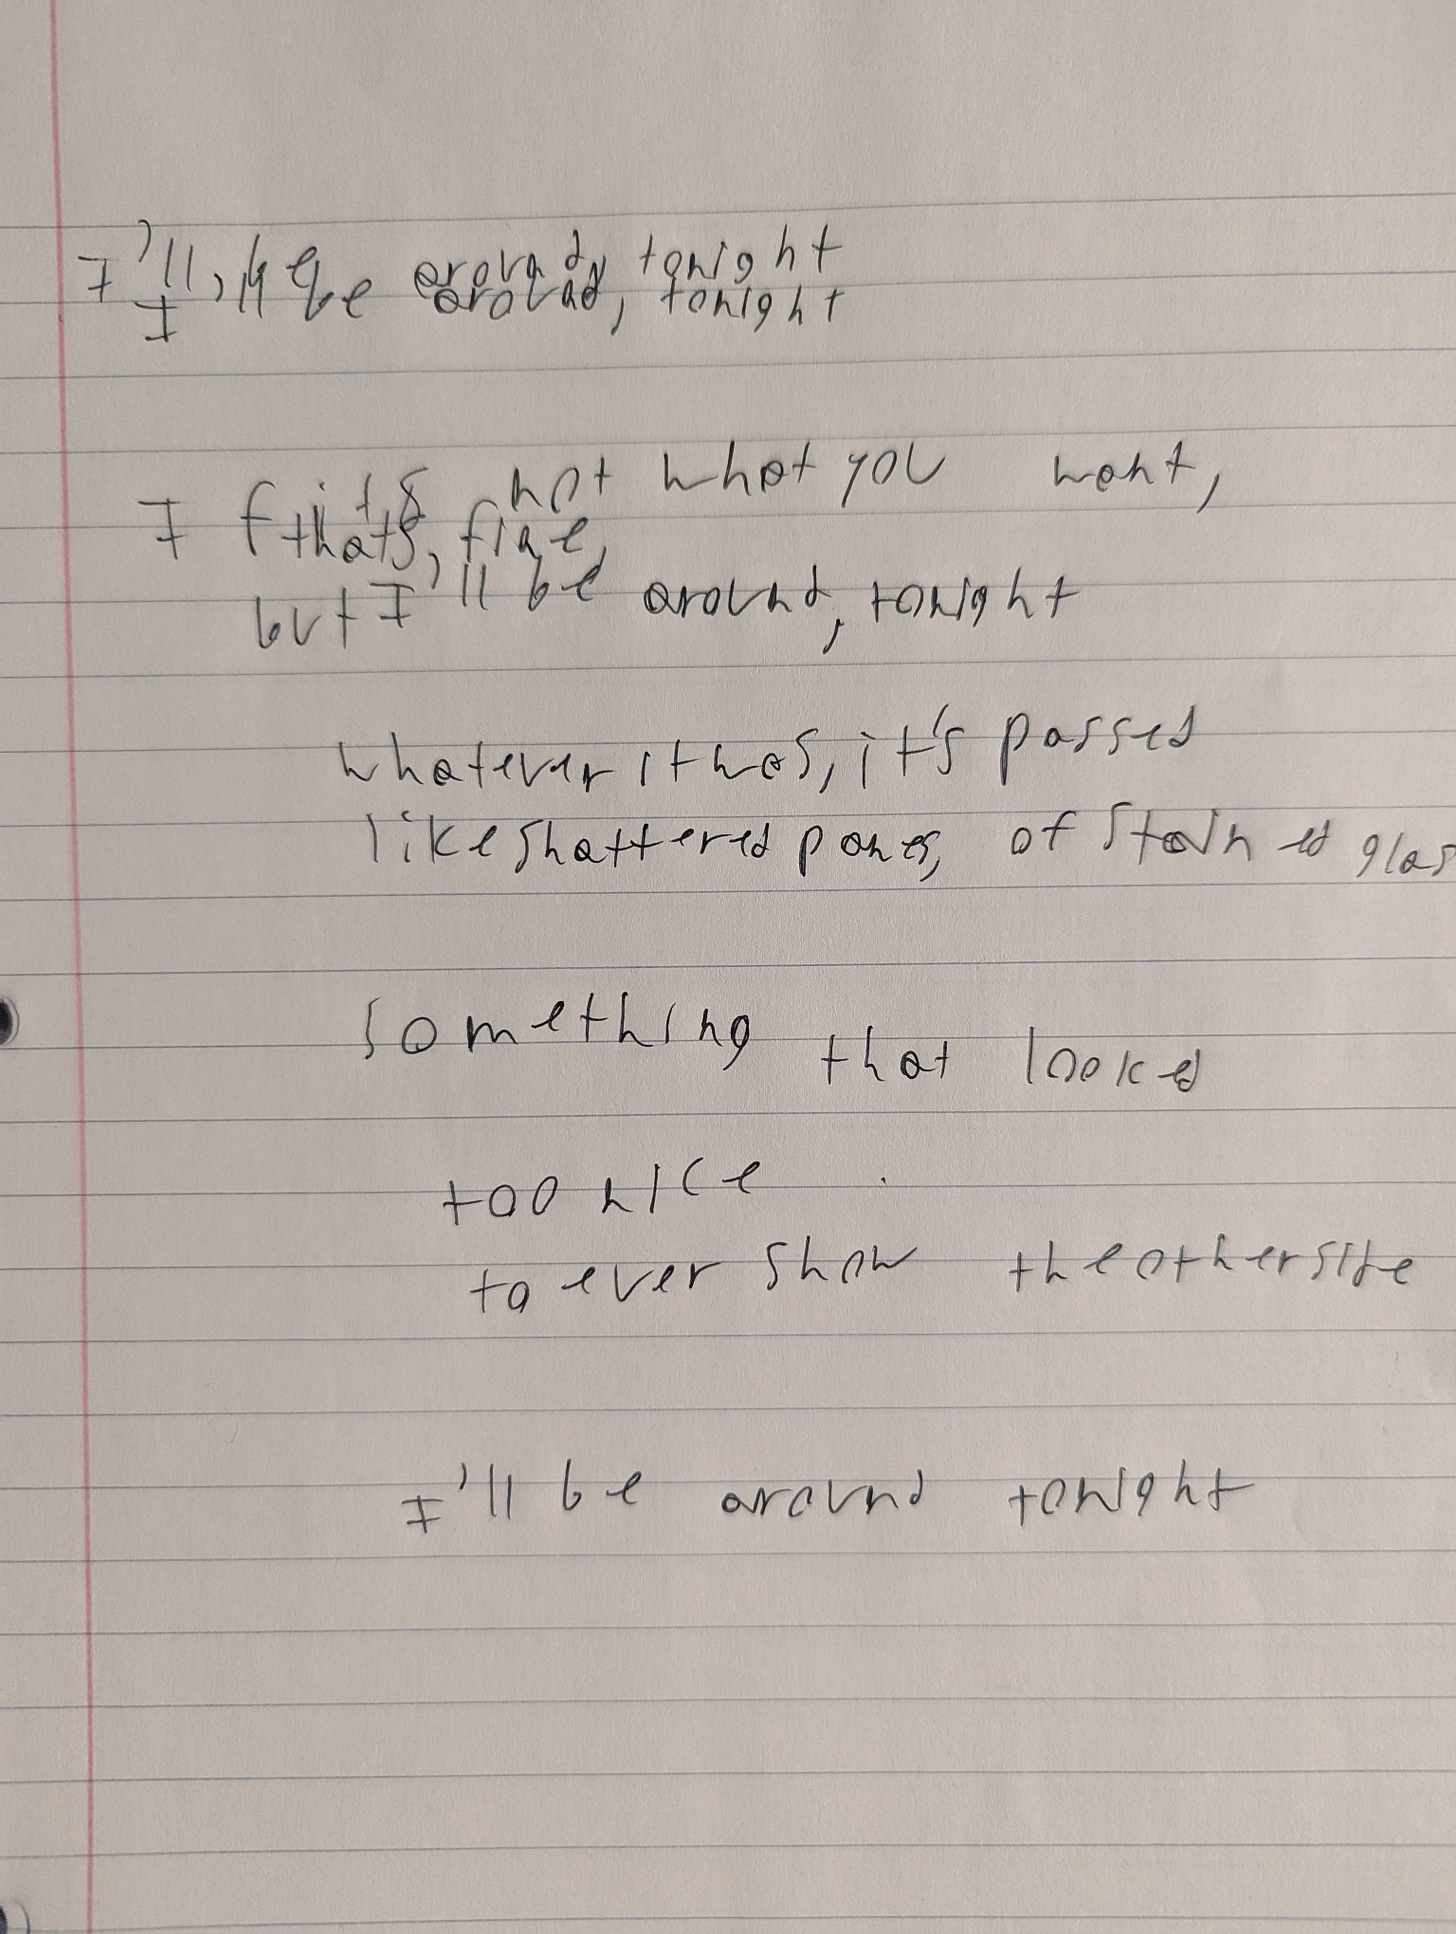 I'll be around, tonight
I'll be around, tonight
If it's not what you want,
that's, fine,
but I'll be around, tonight
whatever it was, it's passed
like shattered panes, of stained glas
something that looked
too nice
to ever show the other side
I'll be around tonight